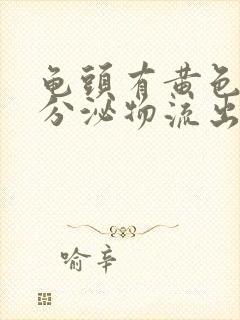 龟頭有黄色
分泌物流出
喻辛